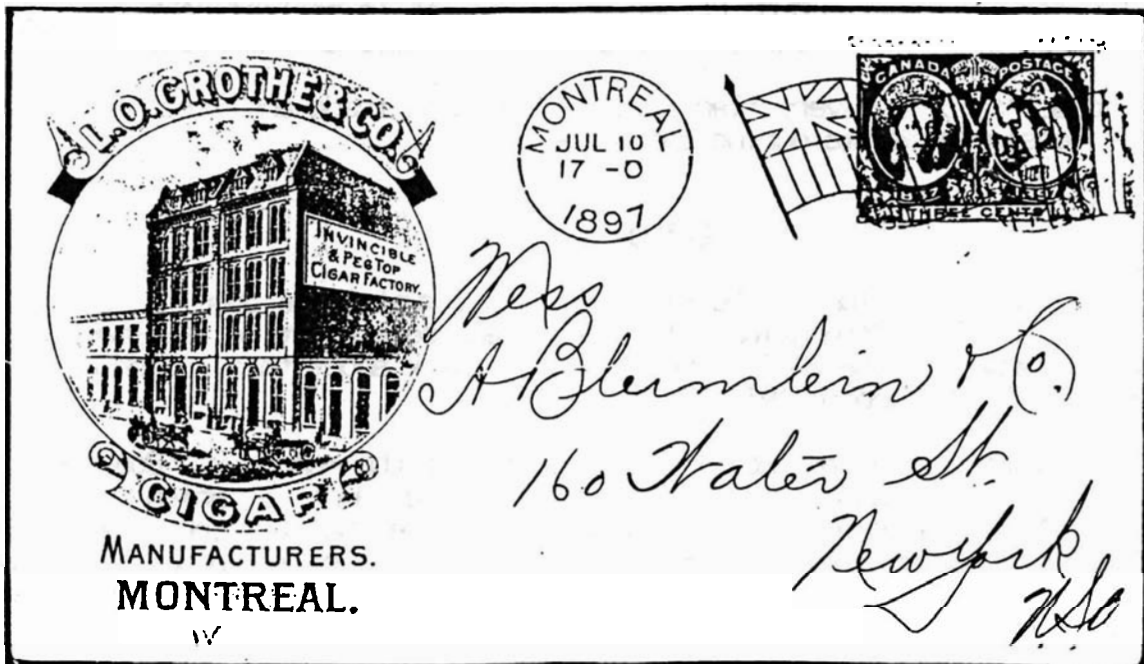 L. O. GROTHE & CO.
INVINCIBLE
& PEG TOP
CIGAR FACTORY.
CIGAR
MANUFACTURERS.
MONTREAL.
MONTREAL
JUL 10
17-0
1897
CANADA POSTAGE
THREE CENTS
Mess
A Blumlein & Co.
160 Water St.
New York